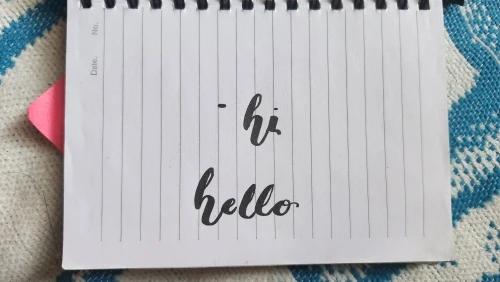 No.
Date.
- hi
hello